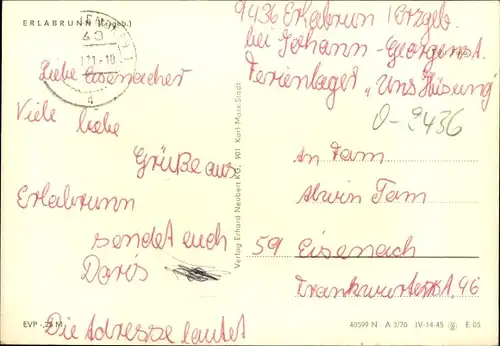 ERLABRUNN (Erzgeb.)
43
Liebe Eisenacher
Viele liebe
Grüße aus
Erlabrunn
sendet euch
Doris
Die Adresse lautet
9436 Erlabrun /Erzgeb.
bei Johann-Georgenst.
Ferienlager „Uns Hüsung
O-9436
An Fam
Alwin Tam
59 Eisenach
Frankfurterst. 46
Verlag Erhard Neubert KG, 901 Karl-Marx-Stadt
EVP -,25 M
40599 N A 3/70 IV-14-45 E 05